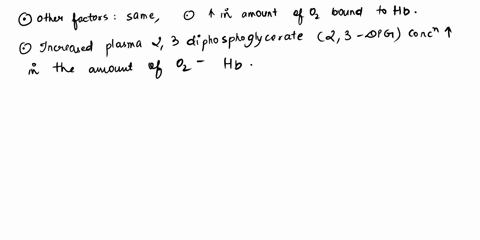 ⊙ other factors: same, ⊙ ↑ in amount of O2 bound to Hb.
⊙ Increased plasma 2, 3 diphosphoglycerate (2, 3 - DPG) concn ↑
in the amount of O2 - Hb.